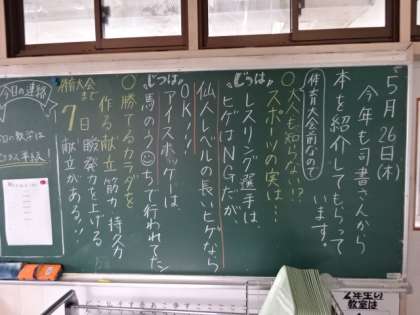 5月26日(木)
今年も司書さんから
本を紹介してもらって
います。
体育大会前なので
○大人も知らない!?
スポーツの実は…
じつは
レスリング選手は、
ヒゲはNGだが、
仙人レベルの長いヒゲなら
OK!
じつは
アイスホッケーは
馬のうんちで行われてた
○勝てるカラダを
作る献立 筋力 持久力
瞬発力を上げる
献立がある!!
体育大会まで
7日
今日の連絡
今日の数学は
2年生の
教室は